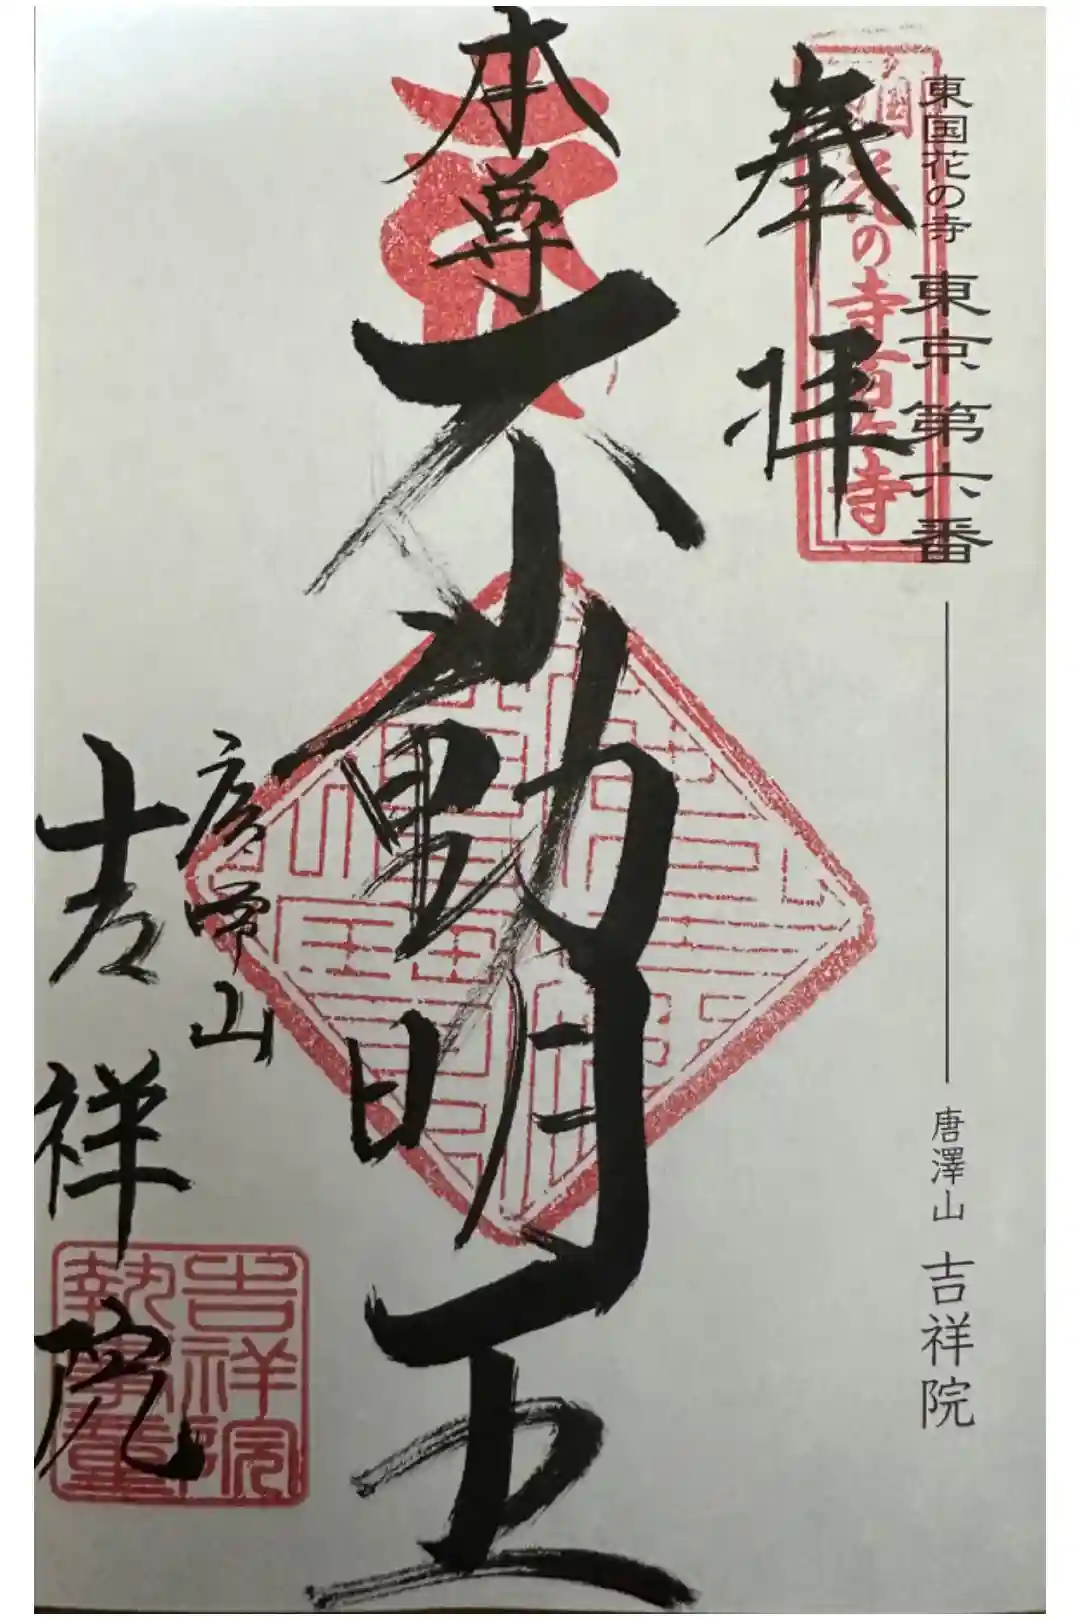 東国花の寺 東京 第六番
唐澤山 吉祥院
奉拝
国花の寺百ヶ寺
本尊
不動明王
山
吉祥院
吉祥院
執事章